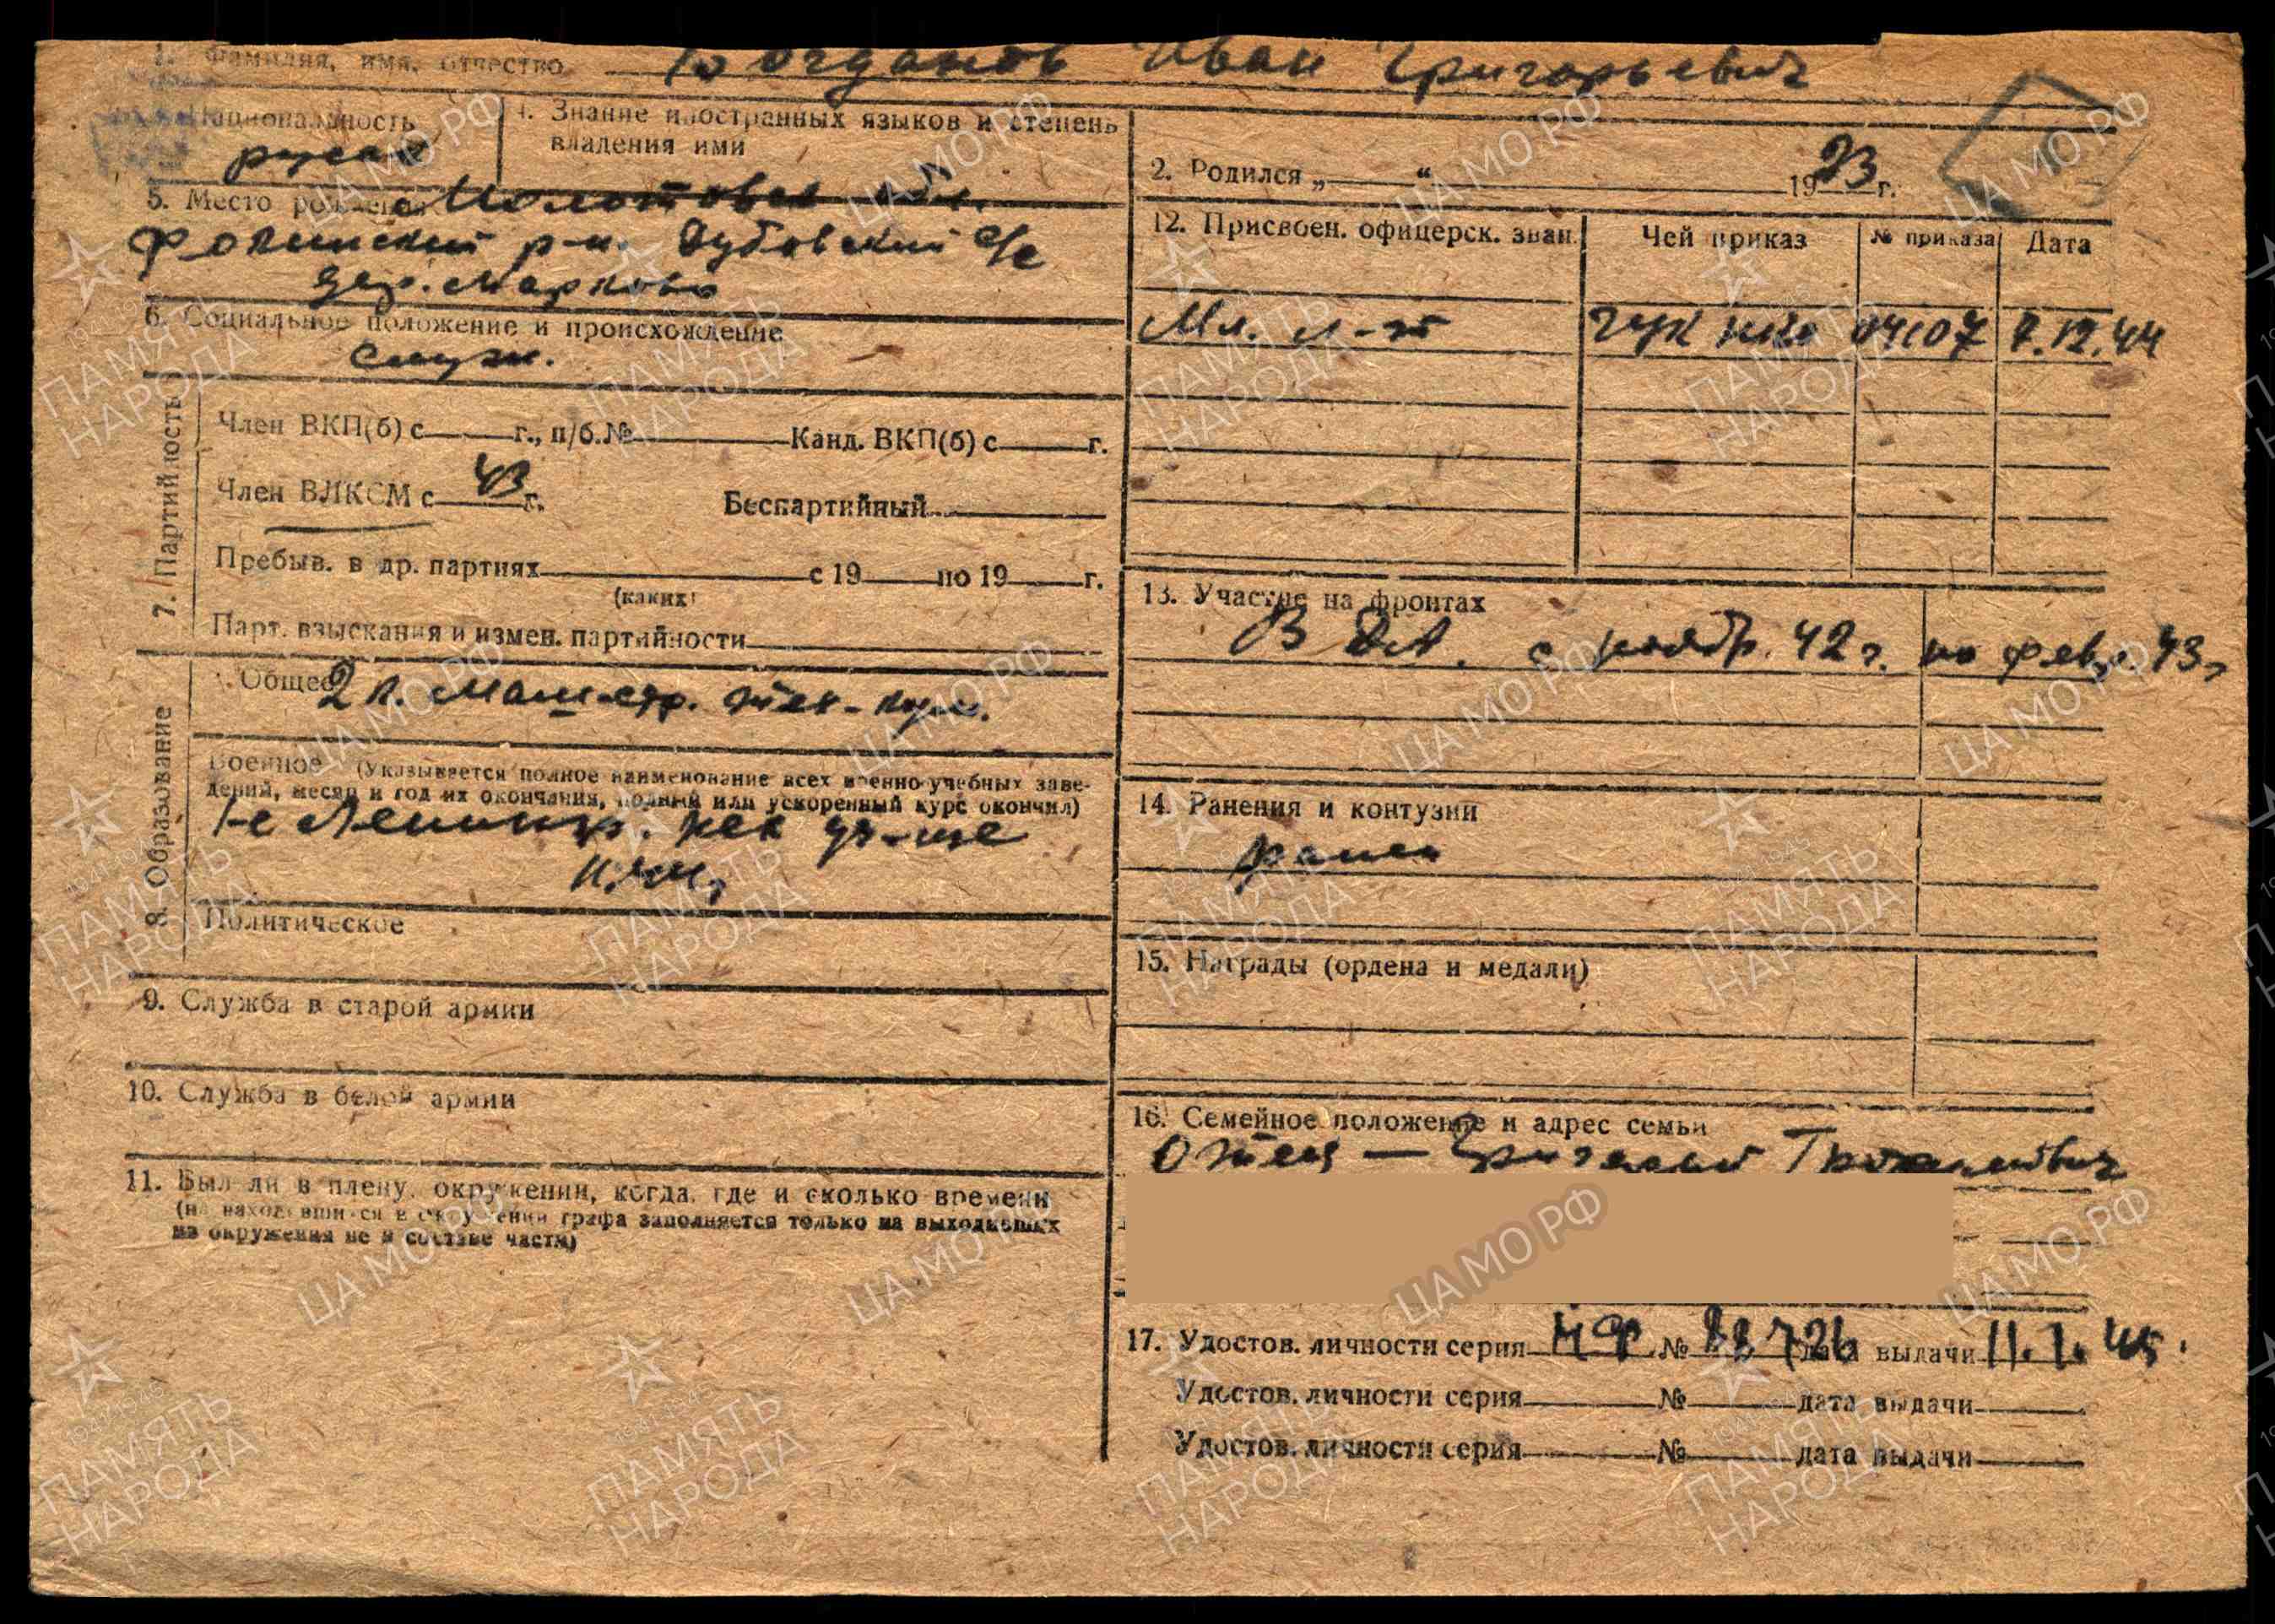 1. Фамилия, имя, отчество Иван Григорьевич
Национальность
русск
4. Знание иностранных языков и степень
владения ими
5. Место рождения Молотовск обл.
Фокинский р-н. Дубовский с/с
дер. Марково
6. Социальное положение и происхождение
служ.
7. Партийность
Член ВКП(б) с г., п/б. № Канд. ВКП(б) с г.
Член ВЛКСМ с 43 г. Беспартийный
Пребыв. в др. партиях с 19 по 19 г.
(каких)
Парт. взыскания и измен. партийности
8. Образование
Общее 2 к. Маш-стр. тех-кум.
Военное (Указывается полное наименование всех военно-учебных заве-
дений, месяц и год их окончания, полный или ускоренный курс окончил)
1-е Ленингр. уч-ще
Политическое
9. Служба в старой армии
10. Служба в белой армии
11. Был ли в плену, окружении, когда, где и сколько времени
(на находившихся в окружении графа заполняется только на выходивших
из окружения не в составе части)
2. Родился „ “ 1923 г.
12. Присвоен. офицерск. зван. Чей приказ № приказа Дата
Мл. л-т ГУК НКО 04107 7.12.44
13. Участие на фронтах
В ДА. с ноябр. 42 г. по февр. 43 г
14. Ранения и контузии
ранен
15. Награды (ордена и медали)
16. Семейное положение и адрес семьи
Отец —
17. Удостов. личности серия № дата выдачи 11.1.45.
Удостов. личности серия № дата выдачи
Удостов. личности серия № дата выдачи
ПАМЯТЬ
НАРОДА
1941-1945
ЦАМО.РФ